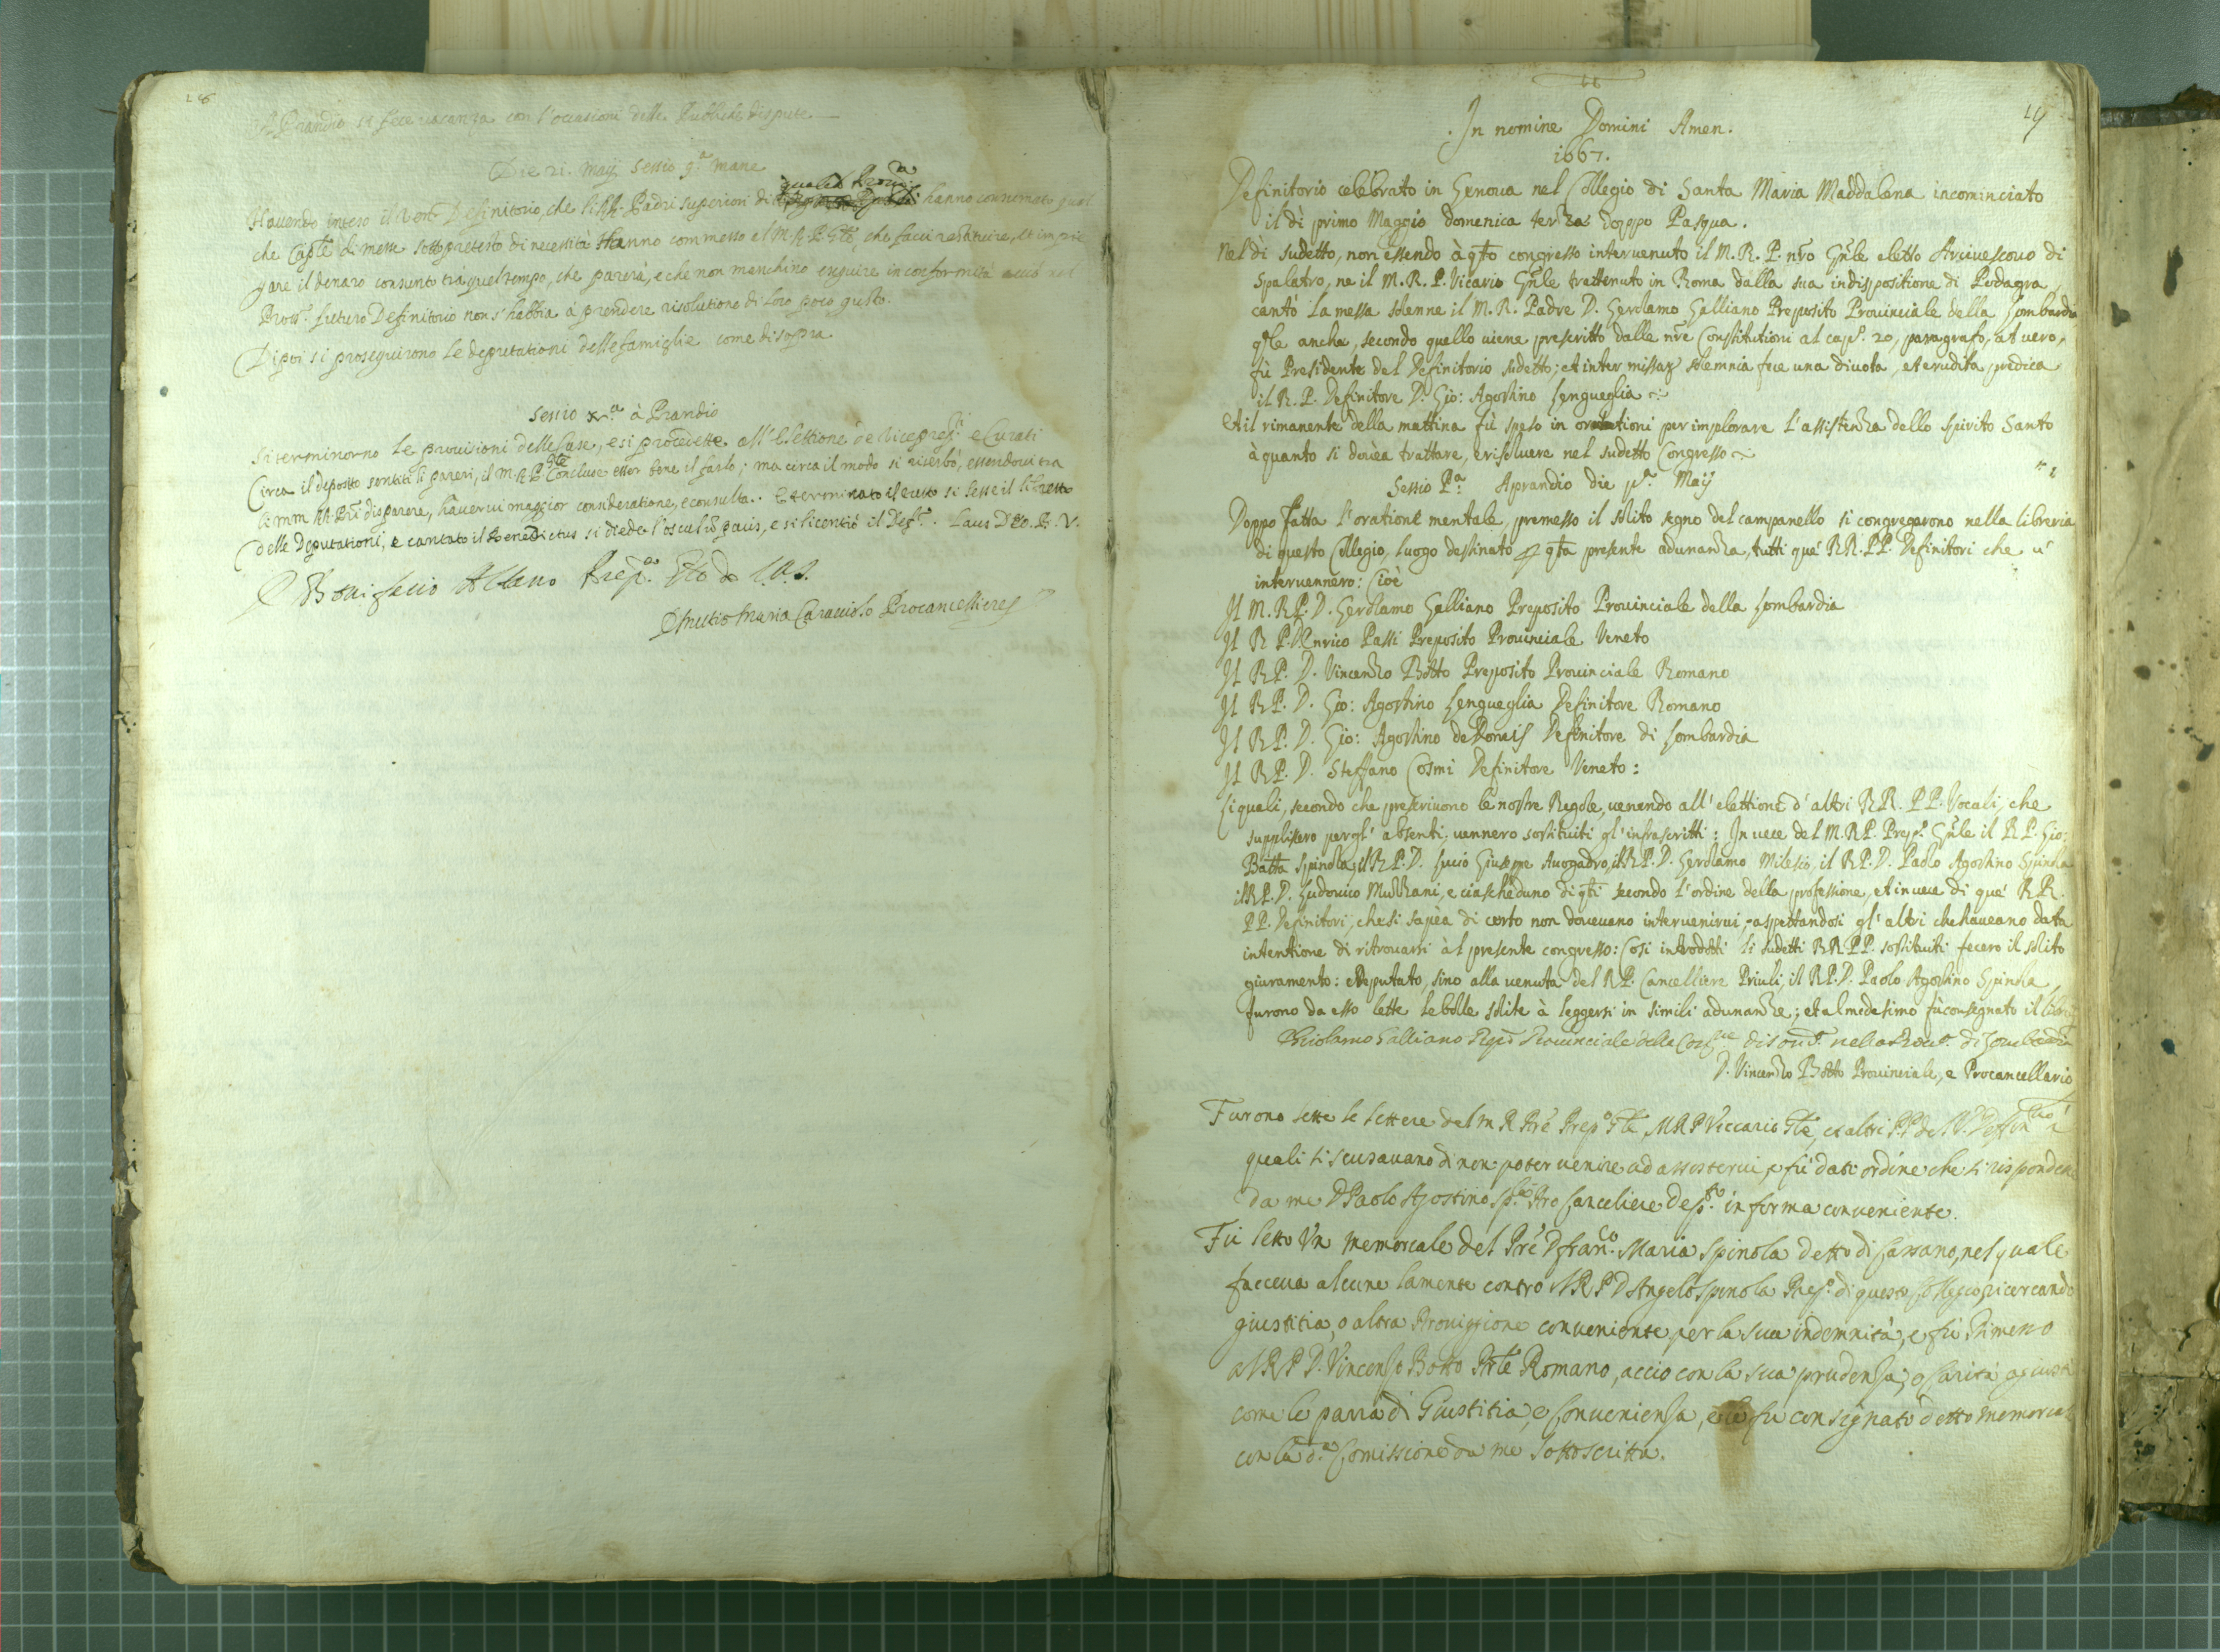 A Prandio si fece vacanza con l'occasioni delle Publiche dispute.
Die 21. Maij sessio 9.a mane
Havendo inteso il Ven. Definitorio, che li RR. Padri superiori di hanno consumato qual
che Cap.le di messe sotto pretesto di necessità Hanno commesso al M. R. P. G.le che facci restituire, et impie
gare il denaro consunto trà quel tempo, che parerà, e che non manchino esequire in conformità acciò nel
Pross.o futuro Definitorio non s'habbia à prendere risolutione di loro poco gusto.
Dipoi si proseguirono le deputationi delle famiglie come di sopra
Sessio x.a à Prandio
Si terminorno le provisioni delle Case, e si procedette all'Elettione de Viceprep.i e Curati
Circa il deposito sentiti li pareri, il M. R. P. G.le Concluse esser bene il farlo; ma circa il modo si riserbò, essendovi tra
li mm RR. PPri disparere, havervi maggior consideratione, e consulta. Et terminato il tutto si lesse il libretto
delle Deputationi, e cantato il Benedictus si diede l'osculũ pacis, e si licentiò il Def.o. Laus Deo. B. V.
D Bonifacio Albano Prep.to G.le
D Mutio Maria Caracciolo Procancelliere
19
In nomine Domini Amen.
1667.
Definitorio celebrato in Genova nel Collegio di Santa Maria Maddalena incominciato
il dì primo Maggio domenica terza doppo Pasqua.
Nel dì sudetto, non essendo à q̃to congresso intervenuto il M. R. P. nr̃o Gñle eletto Arcivescovo di
Spalatro, ne il M. R. P. Vicario Gñle trattenuto in Roma dalla sua indispositione di Podagra,
cantò la messa solenne il M. R. Padre D. Gerolamo Galliano Preposito Provinciale della Lombardia
q̃le ancha, secondo quello viene prescritto dalle nr̃e Constitutioni al cap.o 20, paragrafo, at vero,
fù Presidente del Definitorio sudetto; et inter missar solemnia fece una divota, et erudita predica
il R. P. Definitore D. Gio: Agostino Lengueglia
Et il rimanente della mattina fù speso in orationi per implorare l'assistenza dello Spirito Santo
à quanto si dovèa trattare, e risolvere nel sudetto Congresso
Sessio P.a A prandio die p.a Maij
Doppo fatta l'oratione mentale, premesso il solito segno del campanello si congregarono nella libreria
di questo Collegio, luogo destinato p q̃ta presente adunanza, tutti què RR. PP. Definitori che v'
intervennero: Cioè
Il M. R. P. D. Gerolamo Galliano Preposito Provinciale della Lombardia
Il R P. D. Enrico Passi Preposito Provinciale Veneto
Il R P. D. Vincenzo Botto Preposito Provinciale Romano
Il R P. D. Gio: Agostino Lengueglia Definitore Romano
Il R P. D. Gio: Agostino deDonais Definitore di Lombardia
Il R P. D. Steffano Cosmi Definitore Veneto:
Li quali, secondo che prescrivono le nostre Regole, venendo all'elettione d'altri RR. PP. Vocali, che
supplissero per gl'absenti, vennero sostituiti gl'infrascritti: In vece del M. R. P. Prep.o Gñle il R P. Gio:
Batta Spinola, il R P. D. Lucio Giuseppe Avogadro, il R P. D. Gerolamo Milesio, il R P. D. Paolo Agostino Spinola
il R P. D. Ludovico Muzzani, e ciascheduno di q̃ti secondo l'ordine della professione, et in vece di què RR.
PP. Definitori, che si sapèa di certo non dovevano intervenirvi, aspettandosi gl'altri che haveano data
intentione di ritrovarsi àl presente congresso: Cosi introdotti li sudetti RR PP. sostituiti fecero il solito
giuramento: e deputato, sino alla venuta del R P. Cancelliere Priuli, il R P. D. Paolo Agostino Spinola
furono da esso lette le bolle solite à leggersi in simili adunanze; et al medesimo fù consegnato il libro
Girolamo Galliano Prep.o Provinciale della Cong.ne di Som.a nella Prov.a di Lombardia
D. Vincenzo Botto Provinciale, e Procancellario
Furono lette le lettere del m R Prẽ Prep.o G.le, M R P Viccario G.le, et altri PP del V. Deffin.rio i
quali si scusavano di non poter venire ad assistervi, e fù dato ordine che si rispondesse
da me D Paolo Agostino Sp.la Pro Canceliere dep.to in forma conveniente.
Fù letto Un memoreale del Prẽ D Fran.co Maria Spinola detto di Cassano, nel quale
facceva alcune lamente contro il R P D Angelo Spinola Prep.o di questo Collegio, ricercando
giustitia, o altra Provigione conveniente per la sua indemnità, e fù Rimesso
al R P D. Vincenso Botto P.le Romano, acciò con la sua prudensa, e carità agiusti
come le parrà di Giustitia, e Conveniensa, e le fù consegnato detto memoreal
con la d.a Comissione da me sottoscritta.